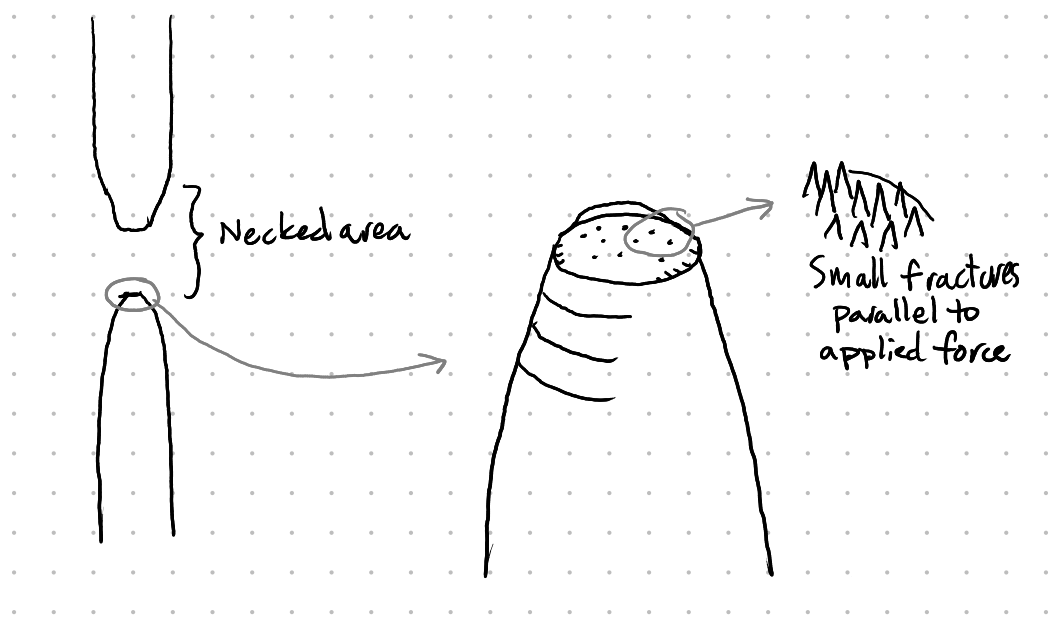 Necked area
Small fractures
parallel to
applied force